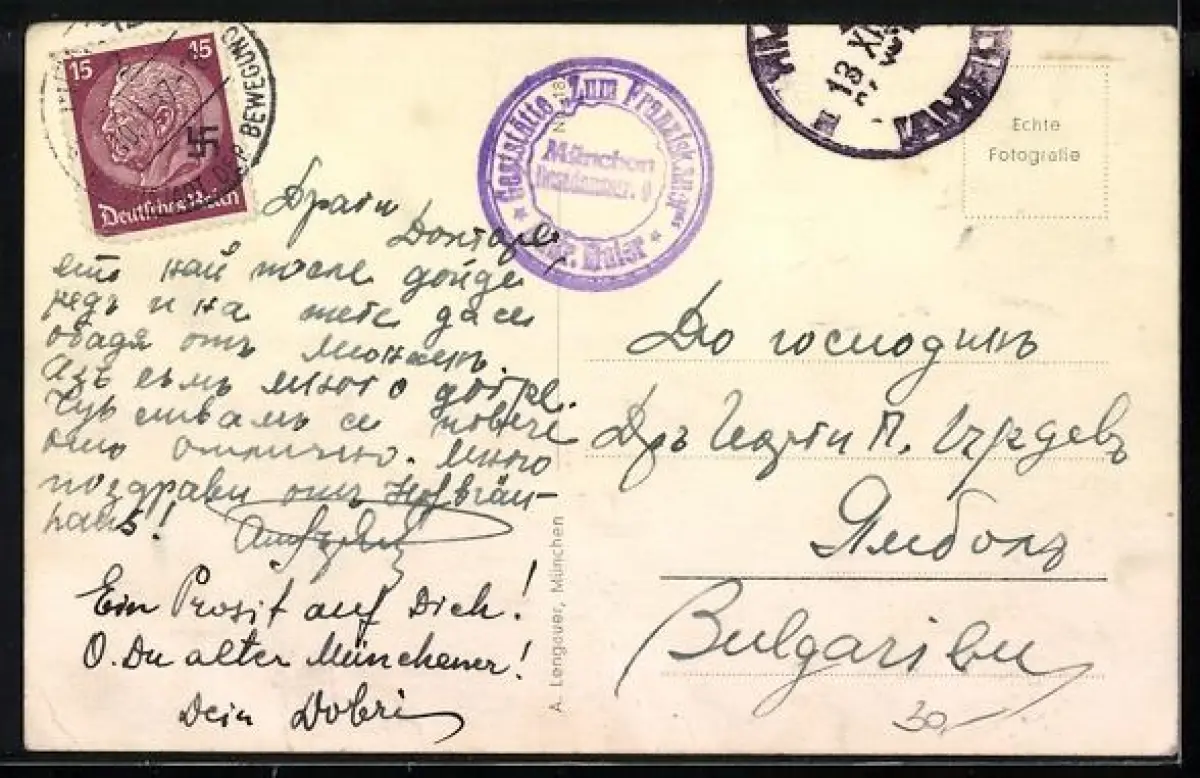 15 15
Deutsches Reich
DER BEWEGUNG
Gaststätte Zum Franziskaner
München
Residenzstr. 9
13 XII
JAMBOL
Echte
Fotografie
Драги
Докторе,
ето най после дойде
редъ и на тебе да се
обадя отъ Мюнхенъ.
Азъ съмъ много добре.
Чувствамъ се повече
отъ отлично. Много
поздрави отъ Hofbräu-
haus!
Ein Prosit auf Dich!
O. Du alter Münchener!
Dein Dobri
A. Lengauer, München
До господинъ
Дръ Георги П.
Ямболъ
Bulgarien
30.